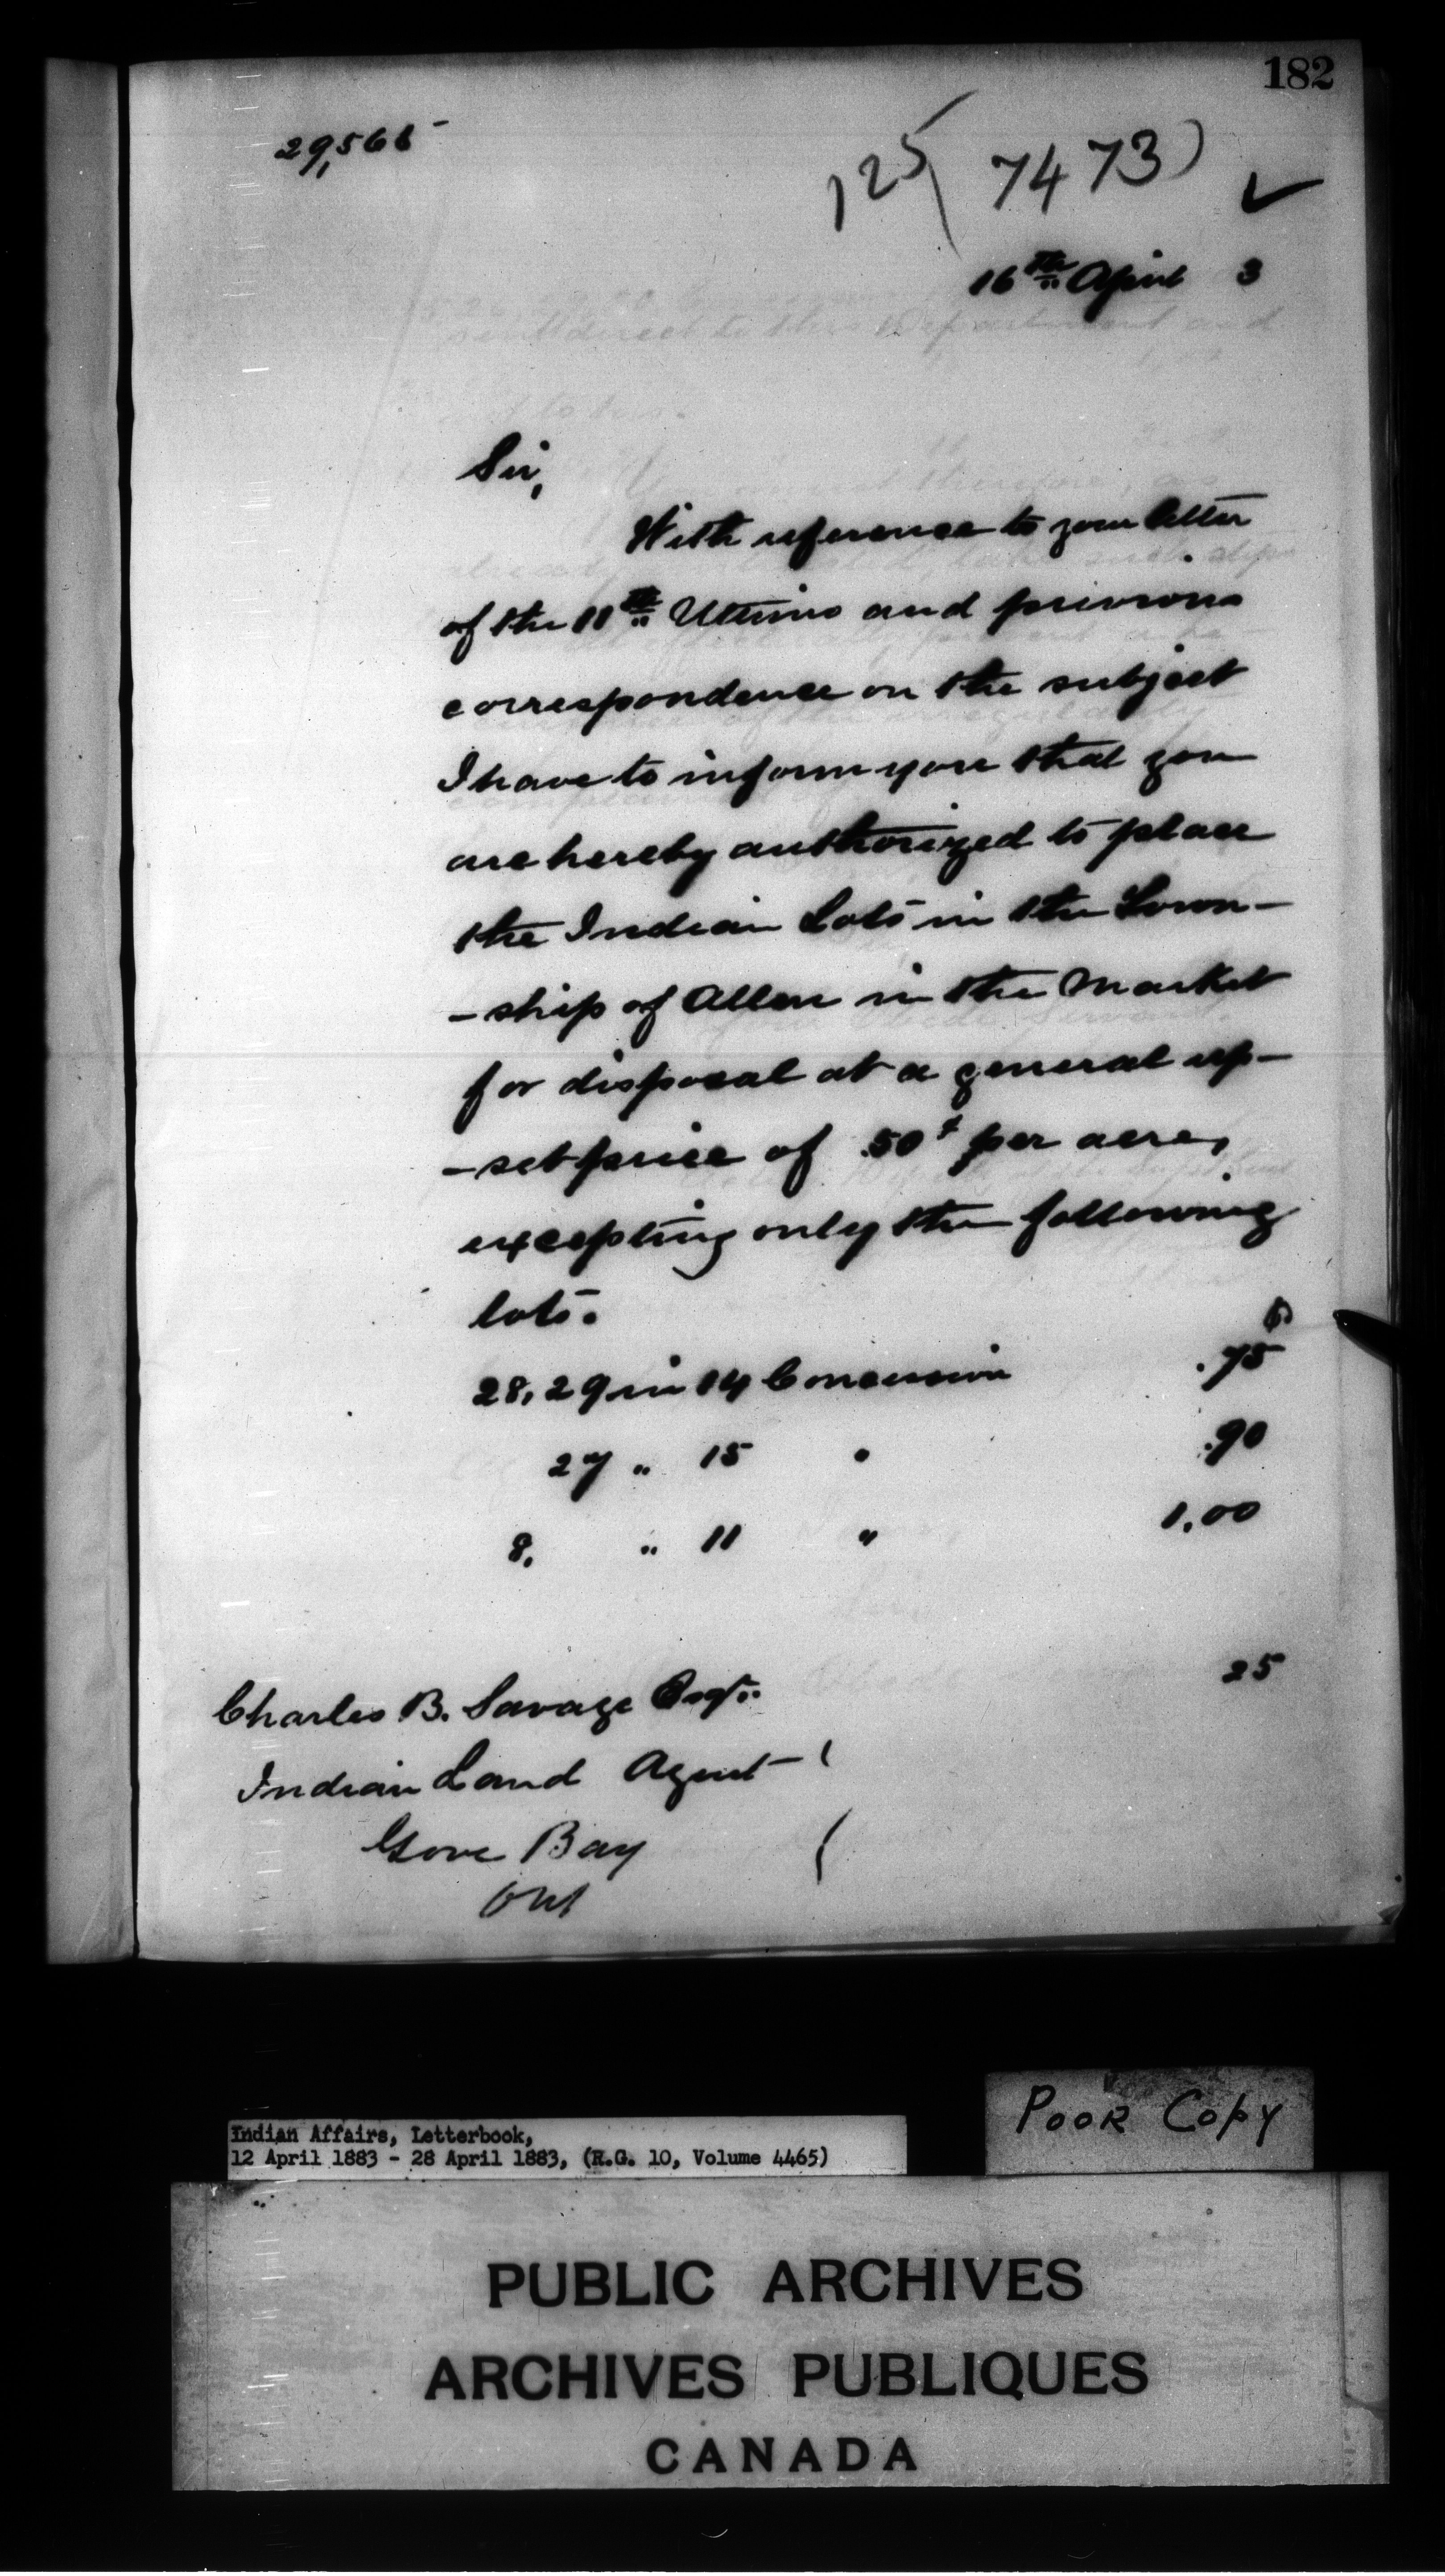 182
29,565
125 (7473)
16th April 3
Sir,
With reference to your letter
of the 11th Ultimo and previous
correspondence on the subject
I have to inform you that you
are hereby authorized to place
the Indian Lots in the Town-
-ship of Allen in the Market
for disposal at a general up-
-set price of .50¢ per acre,
excepting only the following
lots.
28, 29 in 14 Concession .75
27 " 15 " .90
8, " 11 " 1.00
25
Charles B. Savage Esqr.
Indian Land Agent
Gore Bay
Ont
Poor Copy
Indian Affairs, Letterbook,
12 April 1883 - 28 April 1883, (R.G. 10, Volume 4465)
PUBLIC ARCHIVES
ARCHIVES PUBLIQUES
CANADA